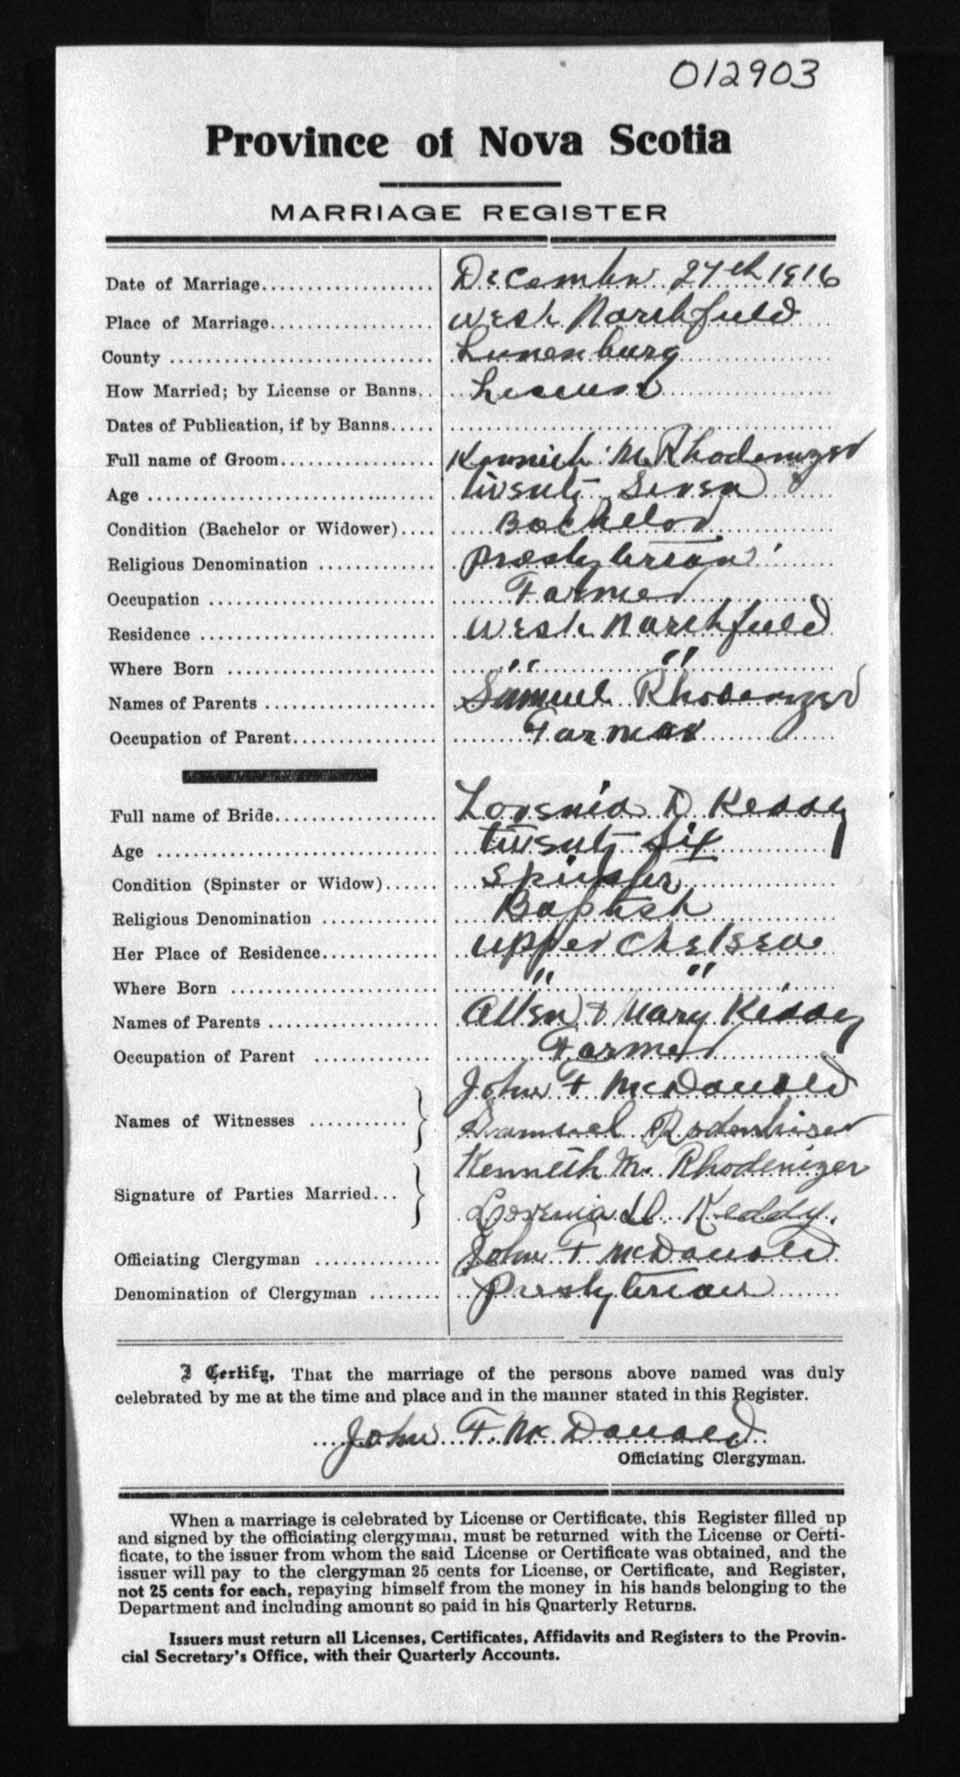 012903
Province of Nova Scotia
MARRIAGE REGISTER
Date of Marriage.................. December 27th 1916
Place of Marriage.................. West Northfield
County .............................. Lunenburg
How Married; by License or Banns.. License
Dates of Publication, if by Banns.....
Full name of Groom.................. Kennith M. Rhodenizer
Age .............................. twenty Seven
Condition (Bachelor or Widower).... Bachelor
Religious Denomination ............. Presbyterian
Occupation .......................... Farmer
Residence .......................... West Northfield
Where Born ........................ " "
Names of Parents ................... Samuel Rhodenizer
Occupation of Parent................ Farmer
Full name of Bride.................. Lovenia D Keddy
Age .............................. twenty six
Condition (Spinster or Widow)...... Spinster
Religious Denomination ............. Baptist
Her Place of Residence............. Upper Chelsea
Where Born ........................ " "
Names of Parents ................... Allen & Mary Keddy
Occupation of Parent ............. Farmer
Names of Witnesses ........... } John F McDonald
Samuel Rodenhiser
Signature of Parties Married... } Kenneth M. Rhodenizer
Lovenia D Keddy.
Officiating Clergyman .............. John F McDonald
Denomination of Clergyman ........ Presbyterian
I Certify, That the marriage of the persons above named was duly
celebrated by me at the time and place and in the manner stated in this Register.
John F. McDonald
Officiating Clergyman.
When a marriage is celebrated by License or Certificate, this Register filled up
and signed by the officiating clergyman, must be returned with the License or Certi-
ficate, to the issuer from whom the said License or Certificate was obtained, and the
issuer will pay to the clergyman 25 cents for License, or Certificate, and Register,
not 25 cents for each, repaying himself from the money in his hands belonging to the
Department and including amount so paid in his Quarterly Returns.
Issuers must return all Licenses, Certificates, Affidavits and Registers to the Provin-
cial Secretary's Office, with their Quarterly Accounts.